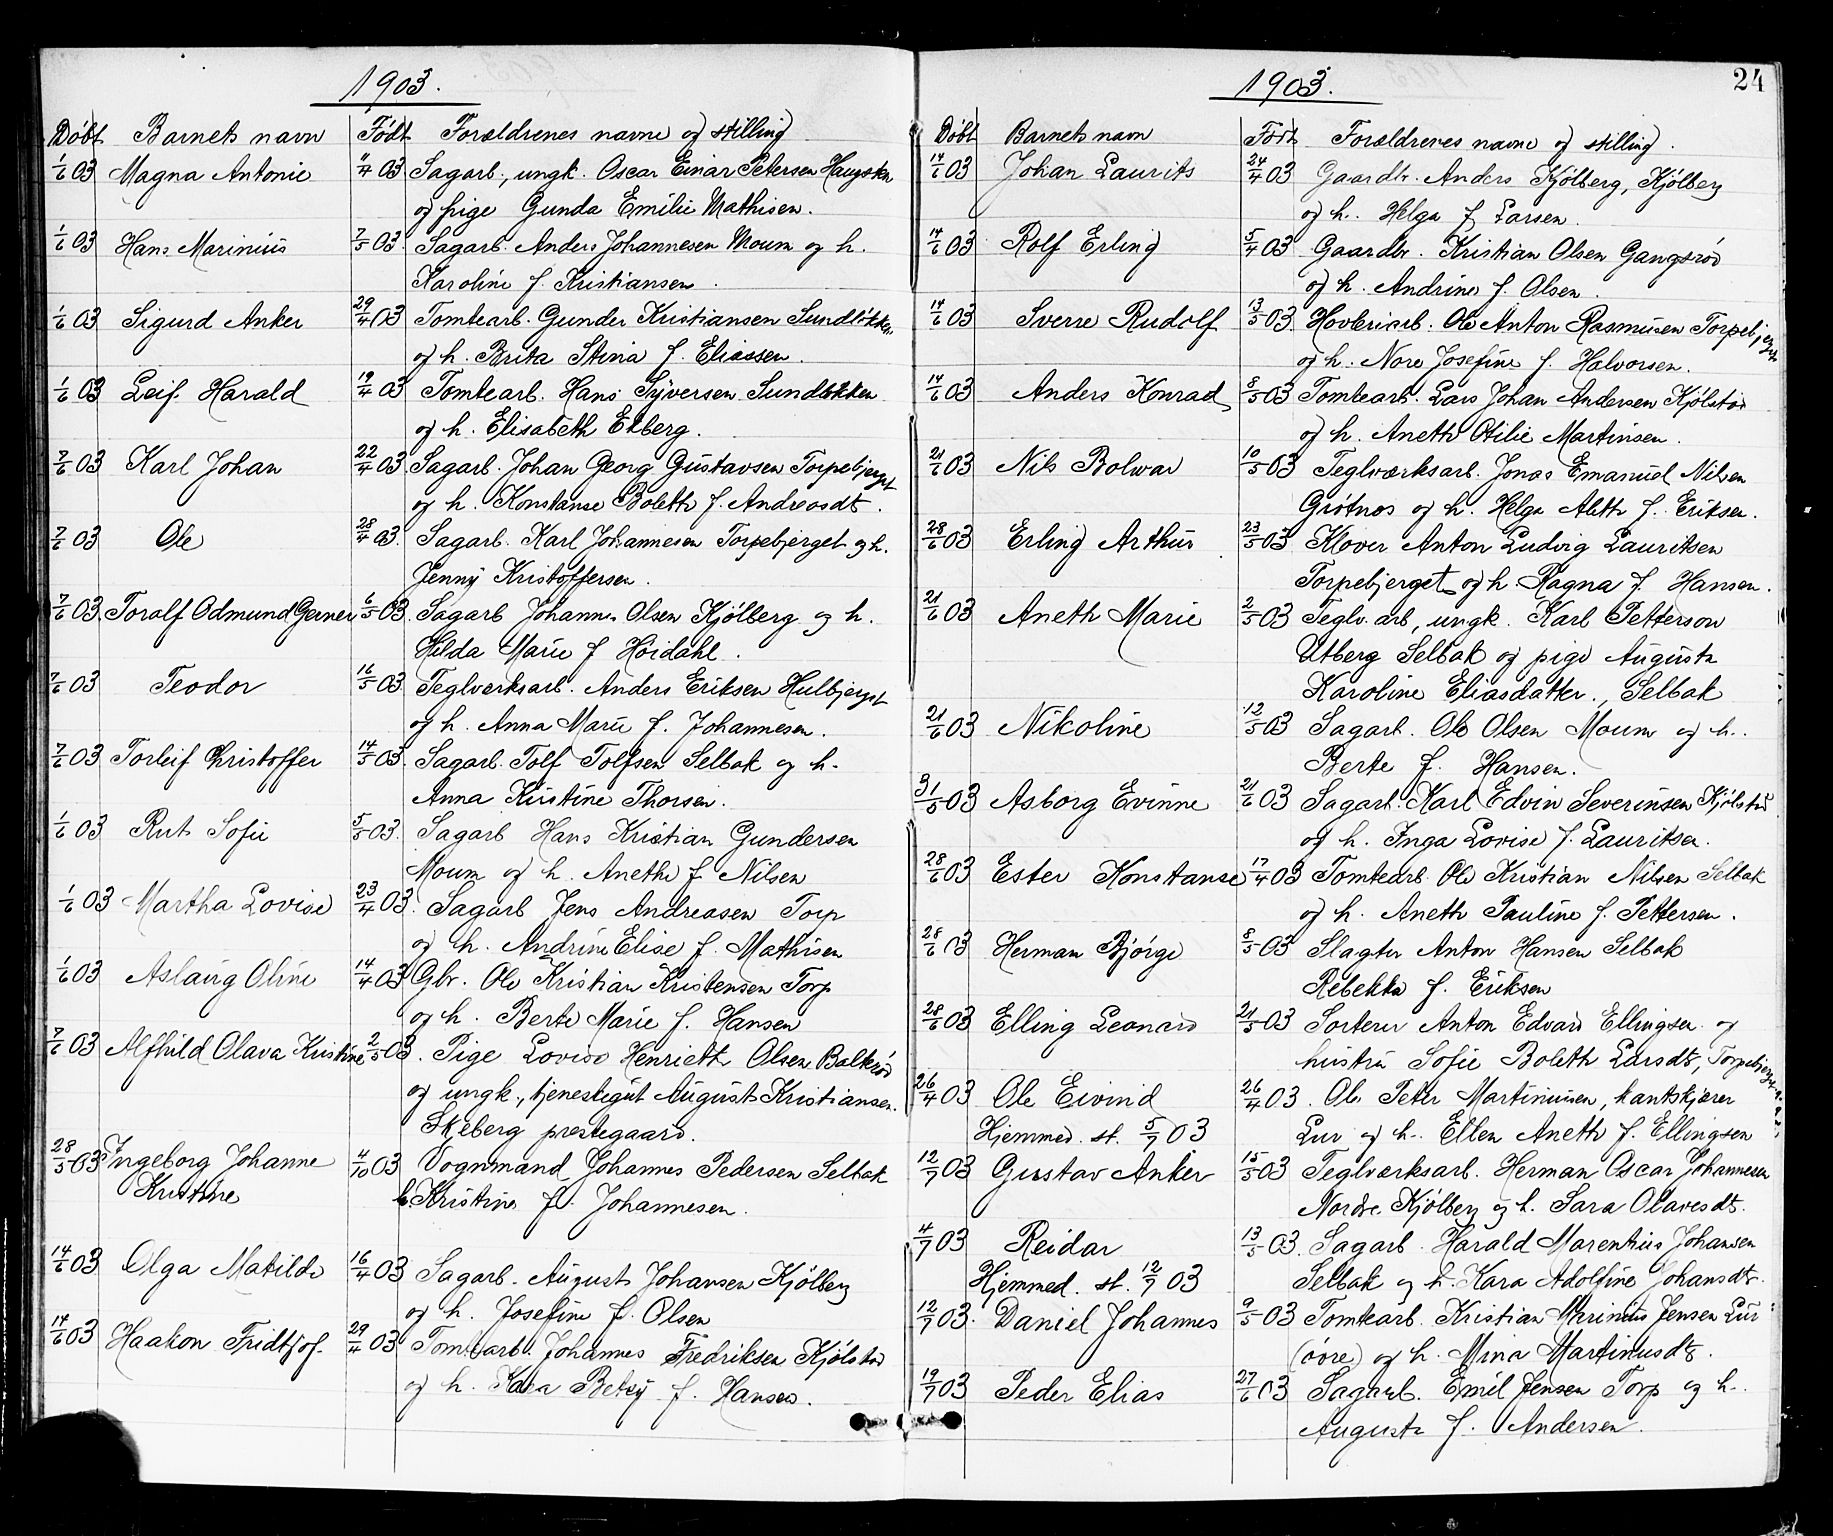 1903.
Döbt Barnets navn Födt Forældrenes navne og stilling
1/6 03 Magna Antonie 11/4 03 Sagarb., ungk. Oscar Einar Petersen Haugsten
og pige Gunda Emilie Mathisen.
1/6 03 Hans Marinius 7/5 03. Sagarb. Anders Johannesen Moum og h.
Karoline f. Kristiansen.
1/6 03 Sigurd Anker 29/4 03 Tomtearb. Gunder Kristiansen Sundlökken
og h. Brita Stina f. Eliassen.
1/6 03 Leif Harald 19/4 03 Tomtearb. Hans Syversen Sundlökken
og h. Elisabeth Ekberg.
7/6 03 Karl Johan 22/4 03 Sagarb. Johan Georg Gustavsen Torpebjerget
og h. Konstanse Boleth f. Andreasdt.
7/6 03 Ole 28/4 03. Sagarb. Karl Johannesen Torpebjerget og h.
Jenny Kristoffersen.
7/6 03. Toralf Odmund Gerner 6/5 03. Sagarb Johannes Olsen Kjölberg og h.
Hilda Marie f Höidahl.
7/6 03 Teodor 16/5 03 Teglverksarb. Anders Eriksen Hulbjerget
og h. Anna Marie f. Johannesen.
7/6 03 Torleif Kristoffer 14/5 03. Sagarb. Tolf Tolfsen Selbak og h.
Anna Kirstine Thorsen.
1/6 03 Rut Sofie 5/5 03. Sagarb Hans Kristian Gundersen
Moum og h. Anethe f Nilsen
1/6 03 Martha Lovise 23/4 03. Sagarb Jens Andreasen Torp
og h. Andrine Elise f. Mathisen
1/6 03 Aslaug Oline 14/4 03 Gbr. Ole Kristian Kristensen Torp
og h. Berte Marie f. Hansen
7/6 03 Alfhild Olava Kristine 2/5 03. Pige Lovise Henriette Olsen Balkröd
og ungk., tjenestegut August Kristiansen.
Skeberg prestegaard.
28/5 03 Ingeborg Johanne 4/10 03 Vognmand Johannes Pedersen Selbak
Kristine h. Kristine f. Johannesen.
14/6 03 Olga Matilde 16/4 03 Sagarb. August Johansen Kjölberg
og h. Josefine f. Olsen
14/6 03 Haakon Fridtjof 29/4 03 Tomtarb. Johannes Fredriksen Kjölstad
og h. Kaia Betsy f. Hansen.
1903. 24
Döbt Barnets navn Födt Forældrenes navne og stilling.
14/6 03 Johan Laurits 24/4 03 Gaardbr. Anders Kjölberg, Kjölberg
og h. Helga f. Larsen.
14/6 03 Rolf Erling 5/4 03 Gaardbr. Kristian Olsen Gangsröd
og h. Andrine f. Olsen.
14/6 03 Sverre Rudolf 13/5 03. Hovleriarb. Ole Anton Rasmusen Torpebjerget
og h. Nora Josefine f. Halvorsen.
14/6 03 Anders Konrad 8/5 03 Tomtearb. Lars Johan Andersen Kjölstad
og h. Aneth Otilie Martinsen.
21/6 03 Nils Bolvar 10/5 03 Teglværksarb. Jonas Emanuel Nilsen
Grötnes og h. Helga Aleth f. Eriksen.
28/6 03 Erling Arthur 23/5 03 Klover Anton Ludvig Lauritsen
Torpebjerget og h. Ragna f. Hansen.
21/6 03 Aneth Marie 2/5 03 Teglv. arb, ungk. Karl Petterson
Utberg Selbak og pige Augusta
Karoline Eliasdatter., Selbak
21/6 03 Nikoline 12/5 03 Sagarb. Ole Olsen Moum og h.
Berte f. Hansen.
31/5 03 Asborg Evinne 21/6 03 Sagarb. Karl Edvin Severinsen Kjölstad
og h. Inga Lovise f. Lauritsen.
28/6 03 Ester Konstanse 17/4 03 Tomtearb. Ole Kristian Nilsen Selbak
og h. Aneth Pauline f. Pettersen.
28/6 03 Herman Björge 8/5 03 Slagter Anton Hansen Selbak
Rebekka f. Eriksen
28/6 03 Elling Leonard 21/5 03 Sorterer Anton Edvard Ellingsen og
hustru Sofie Boleth Larsdt, Torpebjerget
26/4 03 Ole Eivind 26/4 03. Ole Peter Martinusen, kantskjærer
Hjemmed. st. 5/7 03 Lur og h. Ellen Aneth f. Ellingsen
12/7 03 Gustav Anker 15/5 03 Teglværksarb. Herman Oscar Johannesen
Nordre Kjölberg og h. Sara Olavesdt.
4/7 03 Reidar 13/5 03. Sagarb. Harald Marentius Johansen
Hjemmed. st. 12/7 03 Selbak og h. Kara Adolfine Johansdt.
12/7 03. Daniel Johannes 9/5 03 Tomtearb. Kristian Marinius Jensen Lur
(övre) og h. Mina Martinusdt.
19/7 03 Peder Elias 27/6 03 Sagarb. Emil Jensen Torp og h.
Augusta f. Andersen.